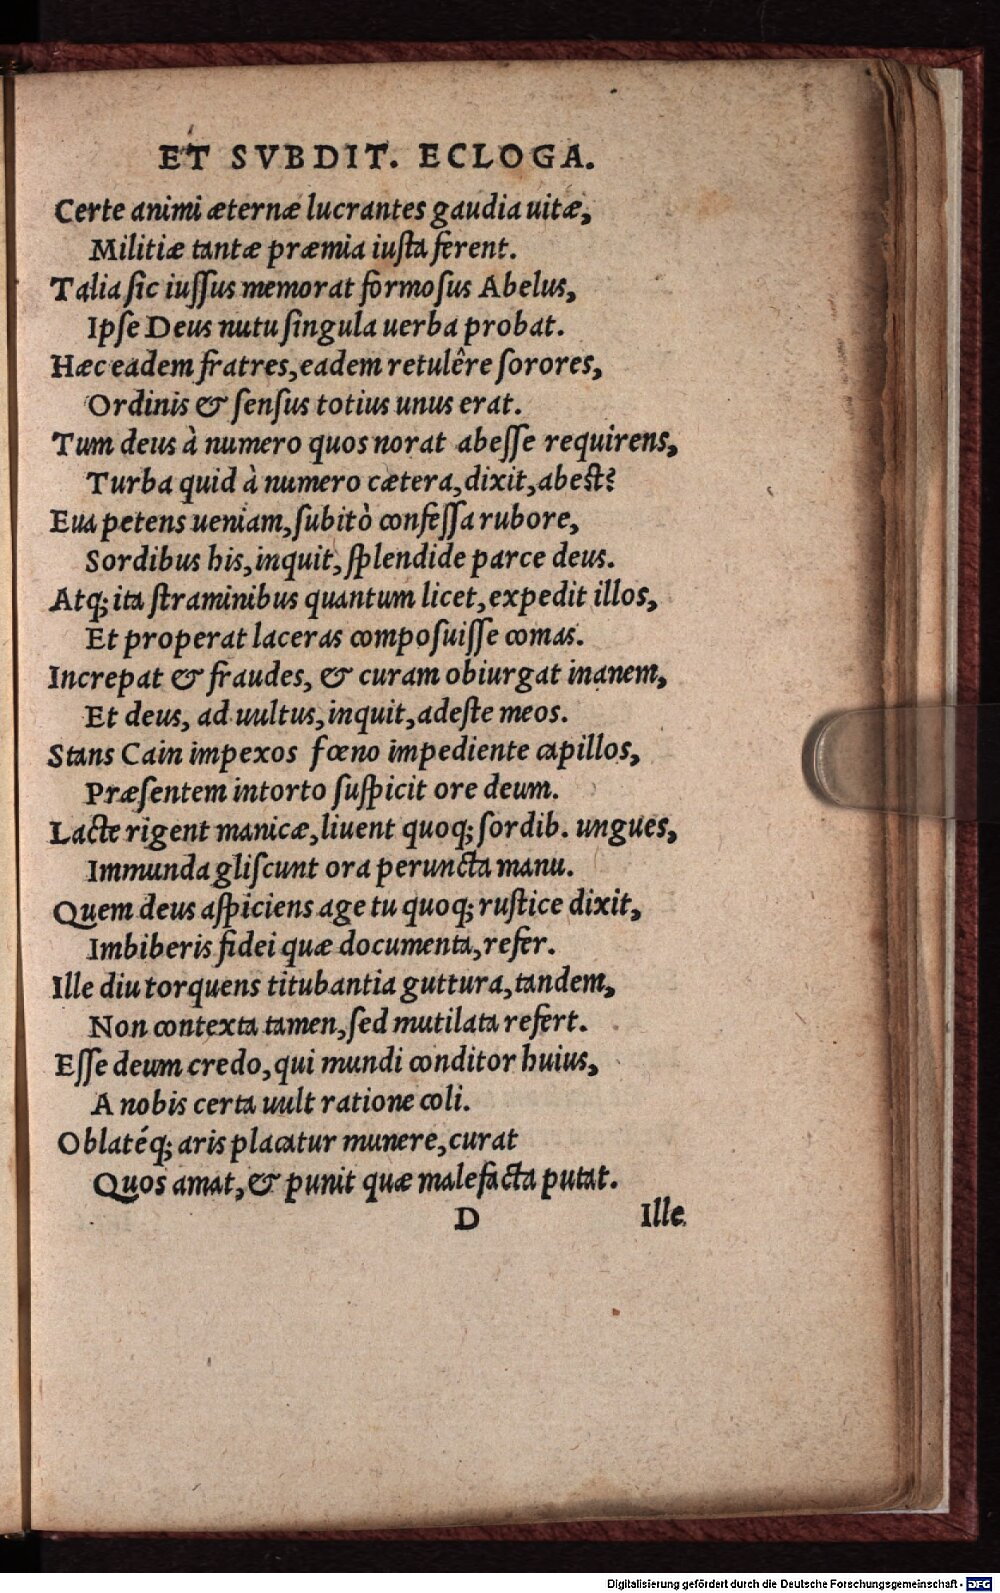 ET SVBDIT. ECLOGA.
Certe animi æternæ lucrantes gaudia uitæ,
Militiæ tantæ præmia iusta ferent.
Talia sic iussus memorat formosus Abelus,
Ipse Deus nutu singula uerba probat.
Hæc eadem fratres, eadem retulêre sorores,
Ordinis & sensus totius unus erat.
Tum deus à numero quos norat abesse requirens,
Turba quid à numero cætera, dixit, abest?
Eua petens ueniam, subitò confessa rubore,
Sordibus his, inquit, splendide parce deus.
Atq; ita straminibus quantum licet, expedit illos,
Et properat laceras composuisse comas.
Increpat & fraudes, & curam obiurgat inanem,
Et deus, ad uultus, inquit, adeste meos.
Stans Cain impexos fœno impediente capillos,
Præsentem intorto suspicit ore deum.
Lacte rigent manicæ, liuent quoq; sordib. ungues,
Immunda gliscunt ora peruncta manu.
Quem deus aspiciens age tu quoq; rustice dixit,
Imbiberis fidei quæ documenta, refer.
Ille diu torquens titubantia guttura, tandem,
Non contexta tamen, sed mutilata refert.
Esse deum credo, qui mundi conditor huius,
A nobis certa uult ratione coli.
Oblatéq; aris placatur munere, curat
Quos amat, & punit quæ malefacta putat.
D Ille
Digitalisierung gefördert durch die Deutsche Forschungsgemeinschaft - DFG